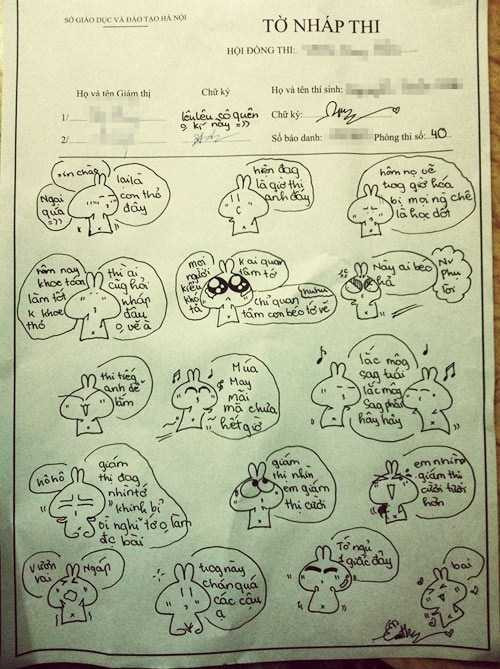 SỞ GIÁO DỤC VÀ ĐÀO TẠO HÀ NỘI
TỜ NHÁP THI
HỘI ĐỒNG THI:
Họ và tên Giám thị
Chữ ký
Họ và tên thí sinh:
1/
lêulêu cô quên
kí này =))
Chữ ký:
2/
Số báo danh:
Phòng thi số: 40
xin chào
Ngại
quá
=))
lại là
con thỏ
đây
hiện đag
là giờ thi
anh đấy
hôm nọ vẽ
trog giờ hóa
bị mọi ng chê
là học dốt
hôm nay
khoe toán
làm tốt
k khoe
thỏ
thì ai
cũg hỏi
nháp
đâu
vẽ à
mọi
người
kiểu
khó
tả
k ai quan
tâm tớ
huhu
chỉ quan
tâm con béo tớ vẽ
Này ai béo
hả
Nv
Phụ
Tôi
thi tiếg
anh dễ
lắm
Múa
May
mãi
mà chưa
hết giờ
lắc môg
sag tuổi
lắc môg
sag phải
hây hây
hô hô
giám
thị đag
nhìn tớ
khinh bỉ
vì nghĩ tớ o làm
đc bài
giám
thị nhìn
em giám
thị cười
em nhìn
giám thị
cười tươi
hơn
Vươn
vai
Ngáp
trog này
chán quá
các cậu
ạ
Tớ ngủ
1 giấc đây
bai